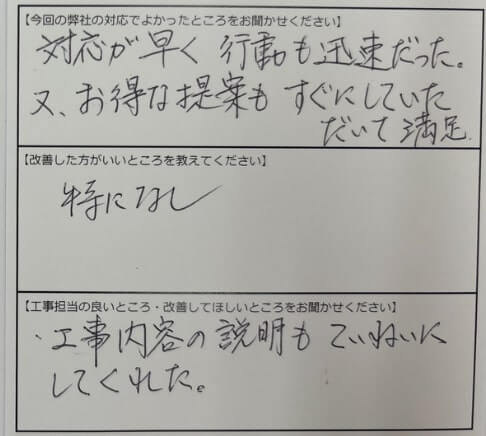 【今回の弊社の対応でよかったところをお聞かせください】
対応が早く 行動も迅速だった。
又、お得な提案も すぐにしていた
だいて満足.
【改善した方がいいところを教えてください】
特になし
【工事担当の良いところ・改善してほしいところをお聞かせください】
・工事内容の説明も ていねいに
してくれた。